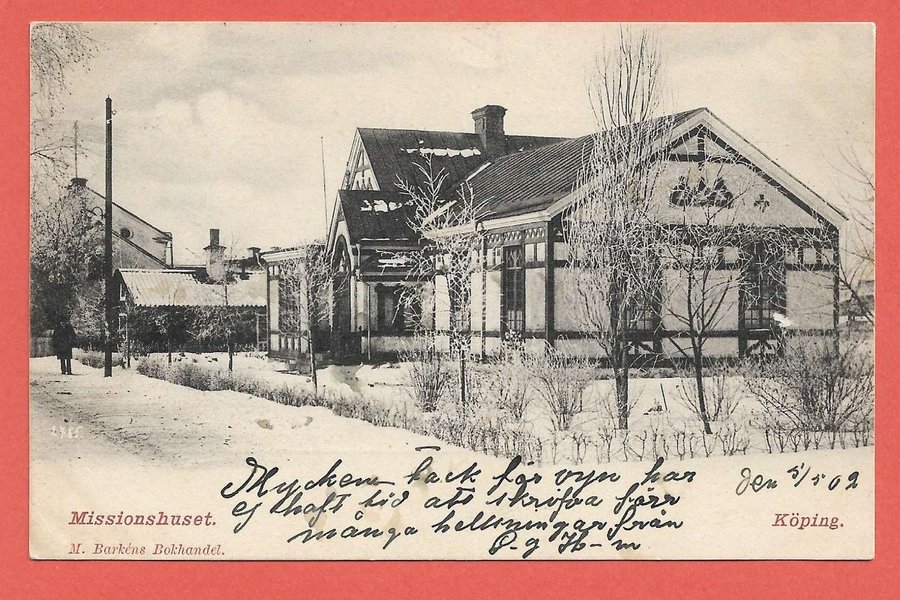 Mycken tack för vyn har
ej haft tid att skrifva förr
många helsningar från
den 5/5 02
Missionshuset.
Köping.
M. Barkéns Bokhandel.